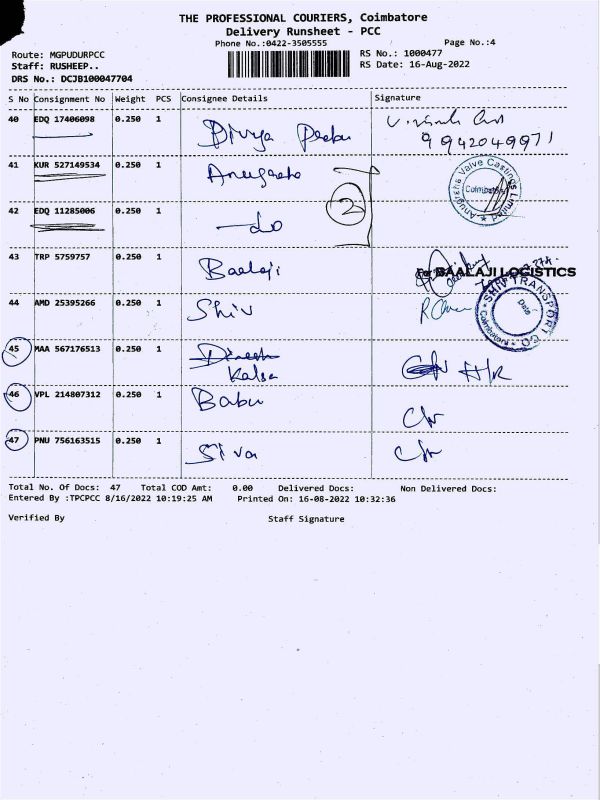 THE PROFESSIONAL COURIERS, Coimbatore
Delivery Runsheet - PCC
Phone No.:0422-3505555 Page No.:4
Route: MGPUDURPCC RS No.: 1000477
Staff: RUSHEEP.. RS Date: 16-Aug-2022
DRS No.: DCJB100047704
S No Consignment No Weight PCS Consignee Details Signature
40 EDQ 17406098 0.250 1 Divya
9942049971
41 KUR 527149534 0.250 1 Anugraha
Anugraha Valve Castings Limited Coimbatore
2
42 EDQ 11285006 0.250 1 do
43 TRP 5759757 0.250 1 Baalaji
For BAALAJI LOGISTICS
44 AMD 25395266 0.250 1 Shiv
SHRI TRANSPORT CO. Coimbatore Date
45 MAA 567176513 0.250 1 Dinesh H/R
Kalsa
46 VPL 214807312 0.250 1 Babu
47 PNU 756163515 0.250 1 Siva
Total No. Of Docs: 47 Total COD Amt: 0.00 Delivered Docs: Non Delivered Docs:
Entered By :TPCPCC 8/16/2022 10:19:25 AM Printed On: 16-08-2022 10:32:36
Verified By Staff Signature